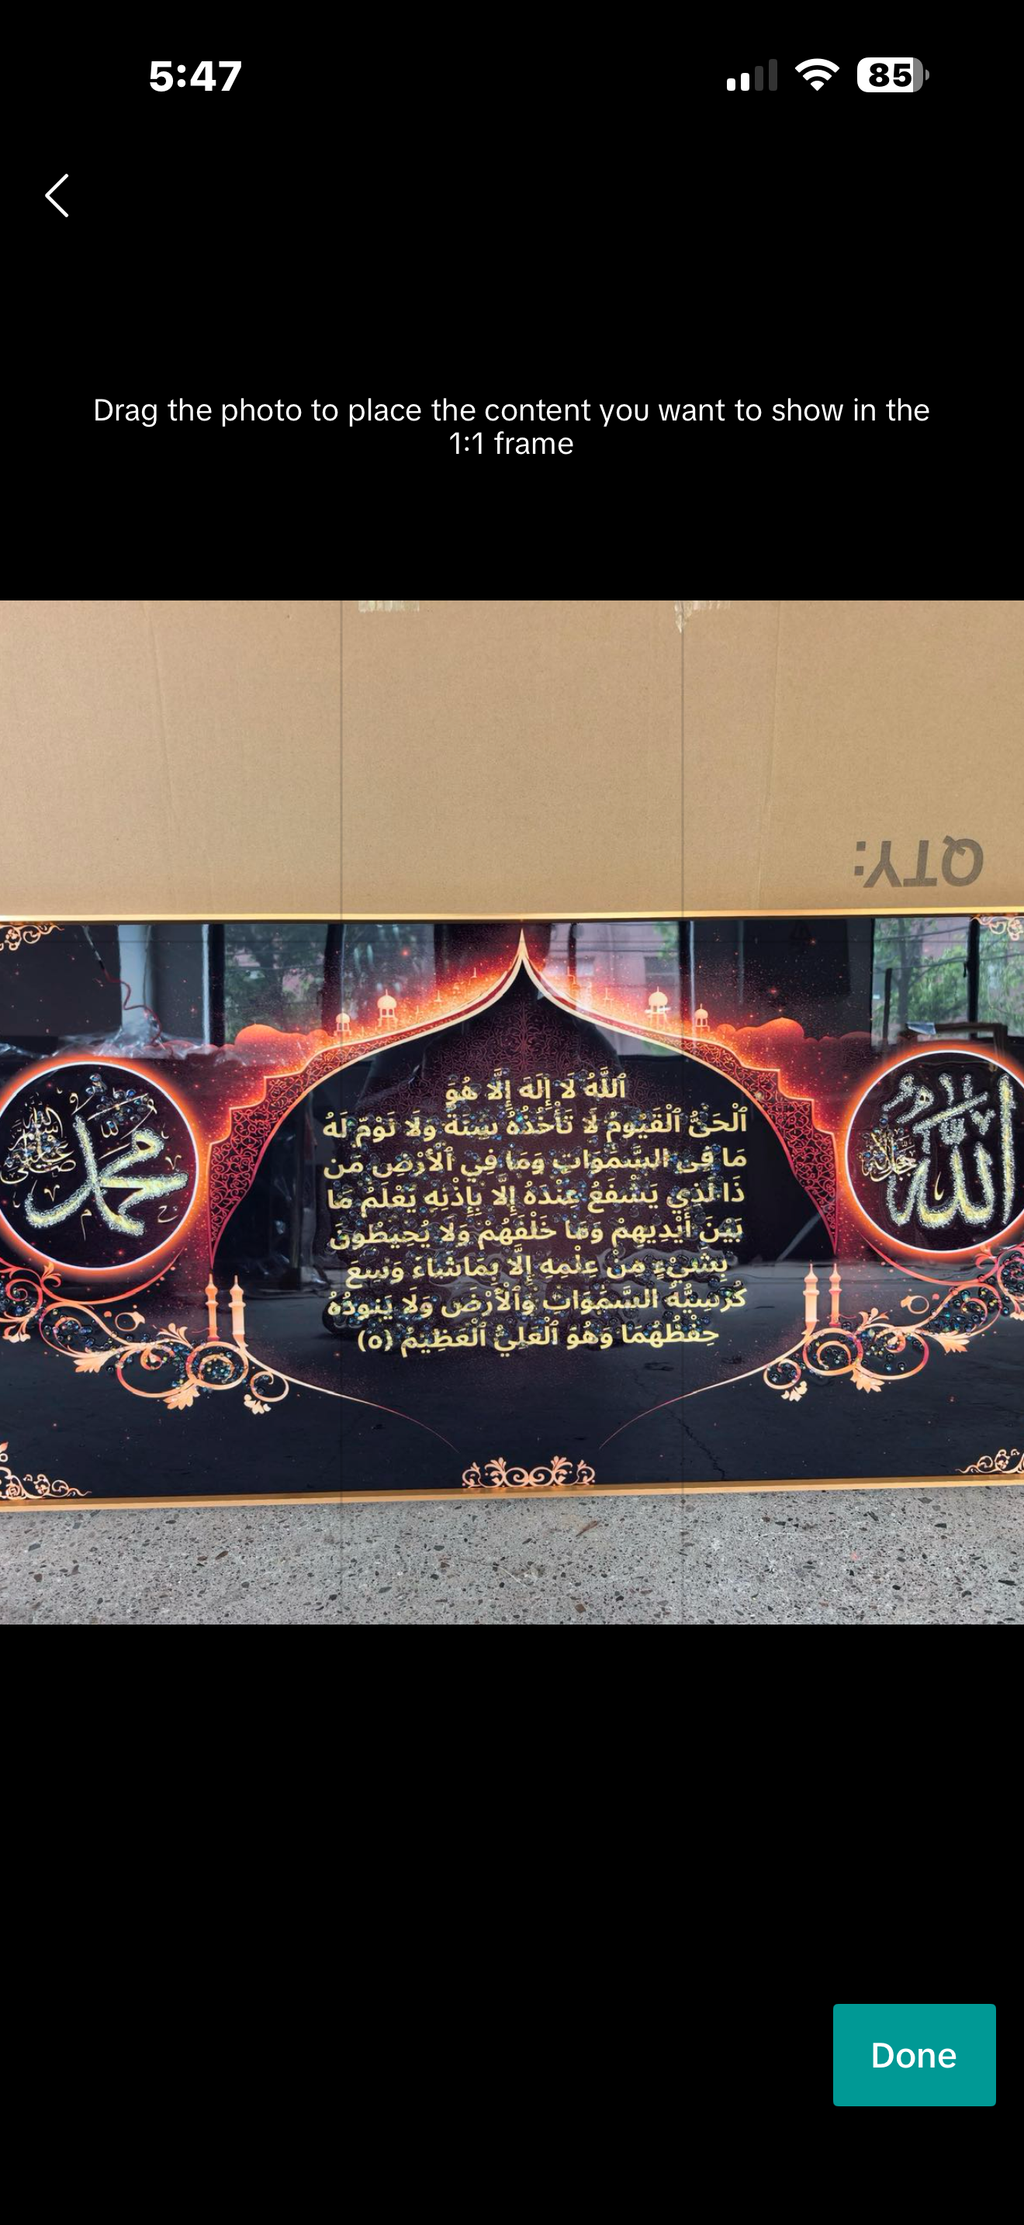 5:47
85
Drag the photo to place the content you want to show in the
1:1 frame
QTY:
ٱللَّهُ لَا إِلَهَ إِلَّا هُوَ
ٱلْحَىُّ ٱلْقَيُّومُ لَا تَأْخُذُهُ سِنَةٌ وَلَا نَوْمٌ لَهُ
مَا فِى السَّمَوَاتِ وَمَا فِي ٱلْأَرْضِ مَن
ذَا لَّذِي يَشْفَعُ عِنْدَهُ إِلَّا بِإِذْنِهِ يَعْلَمُ مَا
بَيْنَ أَيْدِيهِمْ وَمَا خَلْفَهُمْ وَلَا يُحِيطُونَ
بِشَيْءٍ مِنْ عِلْمِهِ إِلَّا بِمَاشَاءَ وَسِعَ
السَّمَوَاتِ وَٱلْأَرْضَ وَلَا
حِفْظُهُمَا وَهُوَ ٱلْعَلِيُّ ٱلْعَظِيمُ (٥)
محمد
الله
Done